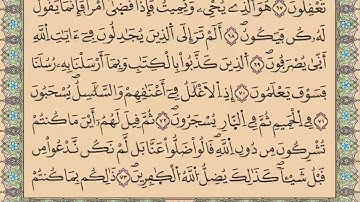 تَعْقِلُونَ ۝٦٧ هُوَ ٱلَّذِى يُحْىِۦ وَيُمِيتُ فَإِذَا قَضَىٰٓ أَمْرًا فَإِنَّمَا يَقُولُ
لَهُۥ كُن فَيَكُونُ ۝٦٨ أَلَمْ تَرَ إِلَى ٱلَّذِينَ يُجَٰدِلُونَ فِىٓ ءَايَٰتِ ٱللَّهِ
أَنَّىٰ يُصْرَفُونَ ۝٦٩ ٱلَّذِينَ كَذَّبُوا۟ بِٱلْكِتَٰبِ وَبِمَآ أَرْسَلْنَا بِهِۦ رُسُلَنَا
فَسَوْفَ يَعْلَمُونَ ۝٧٠ إِذِ ٱلْأَغْلَٰلُ فِىٓ أَعْنَٰقِهِمْ وَٱلسَّلَٰسِلُ يُسْحَبُونَ
۝٧١ فِى ٱلْحَمِيمِ ثُمَّ فِى ٱلنَّارِ يُسْجَرُونَ ۝٧٢ ثُمَّ قِيلَ لَهُمْ أَيْنَ مَا كُنتُمْ
تُشْرِكُونَ مِن دُونِ ٱللَّهِ قَالُوا۟ ضَلُّوا۟ عَنَّا بَل لَّمْ نَكُن نَّدْعُوا۟ مِن
قَبْلُ شَيْـًٔا كَذَٰلِكَ يُضِلُّ ٱللَّهُ ٱلْكَٰفِرِينَ ۝٧٣ ذَٰلِكُم بِمَا كُنتُمْ